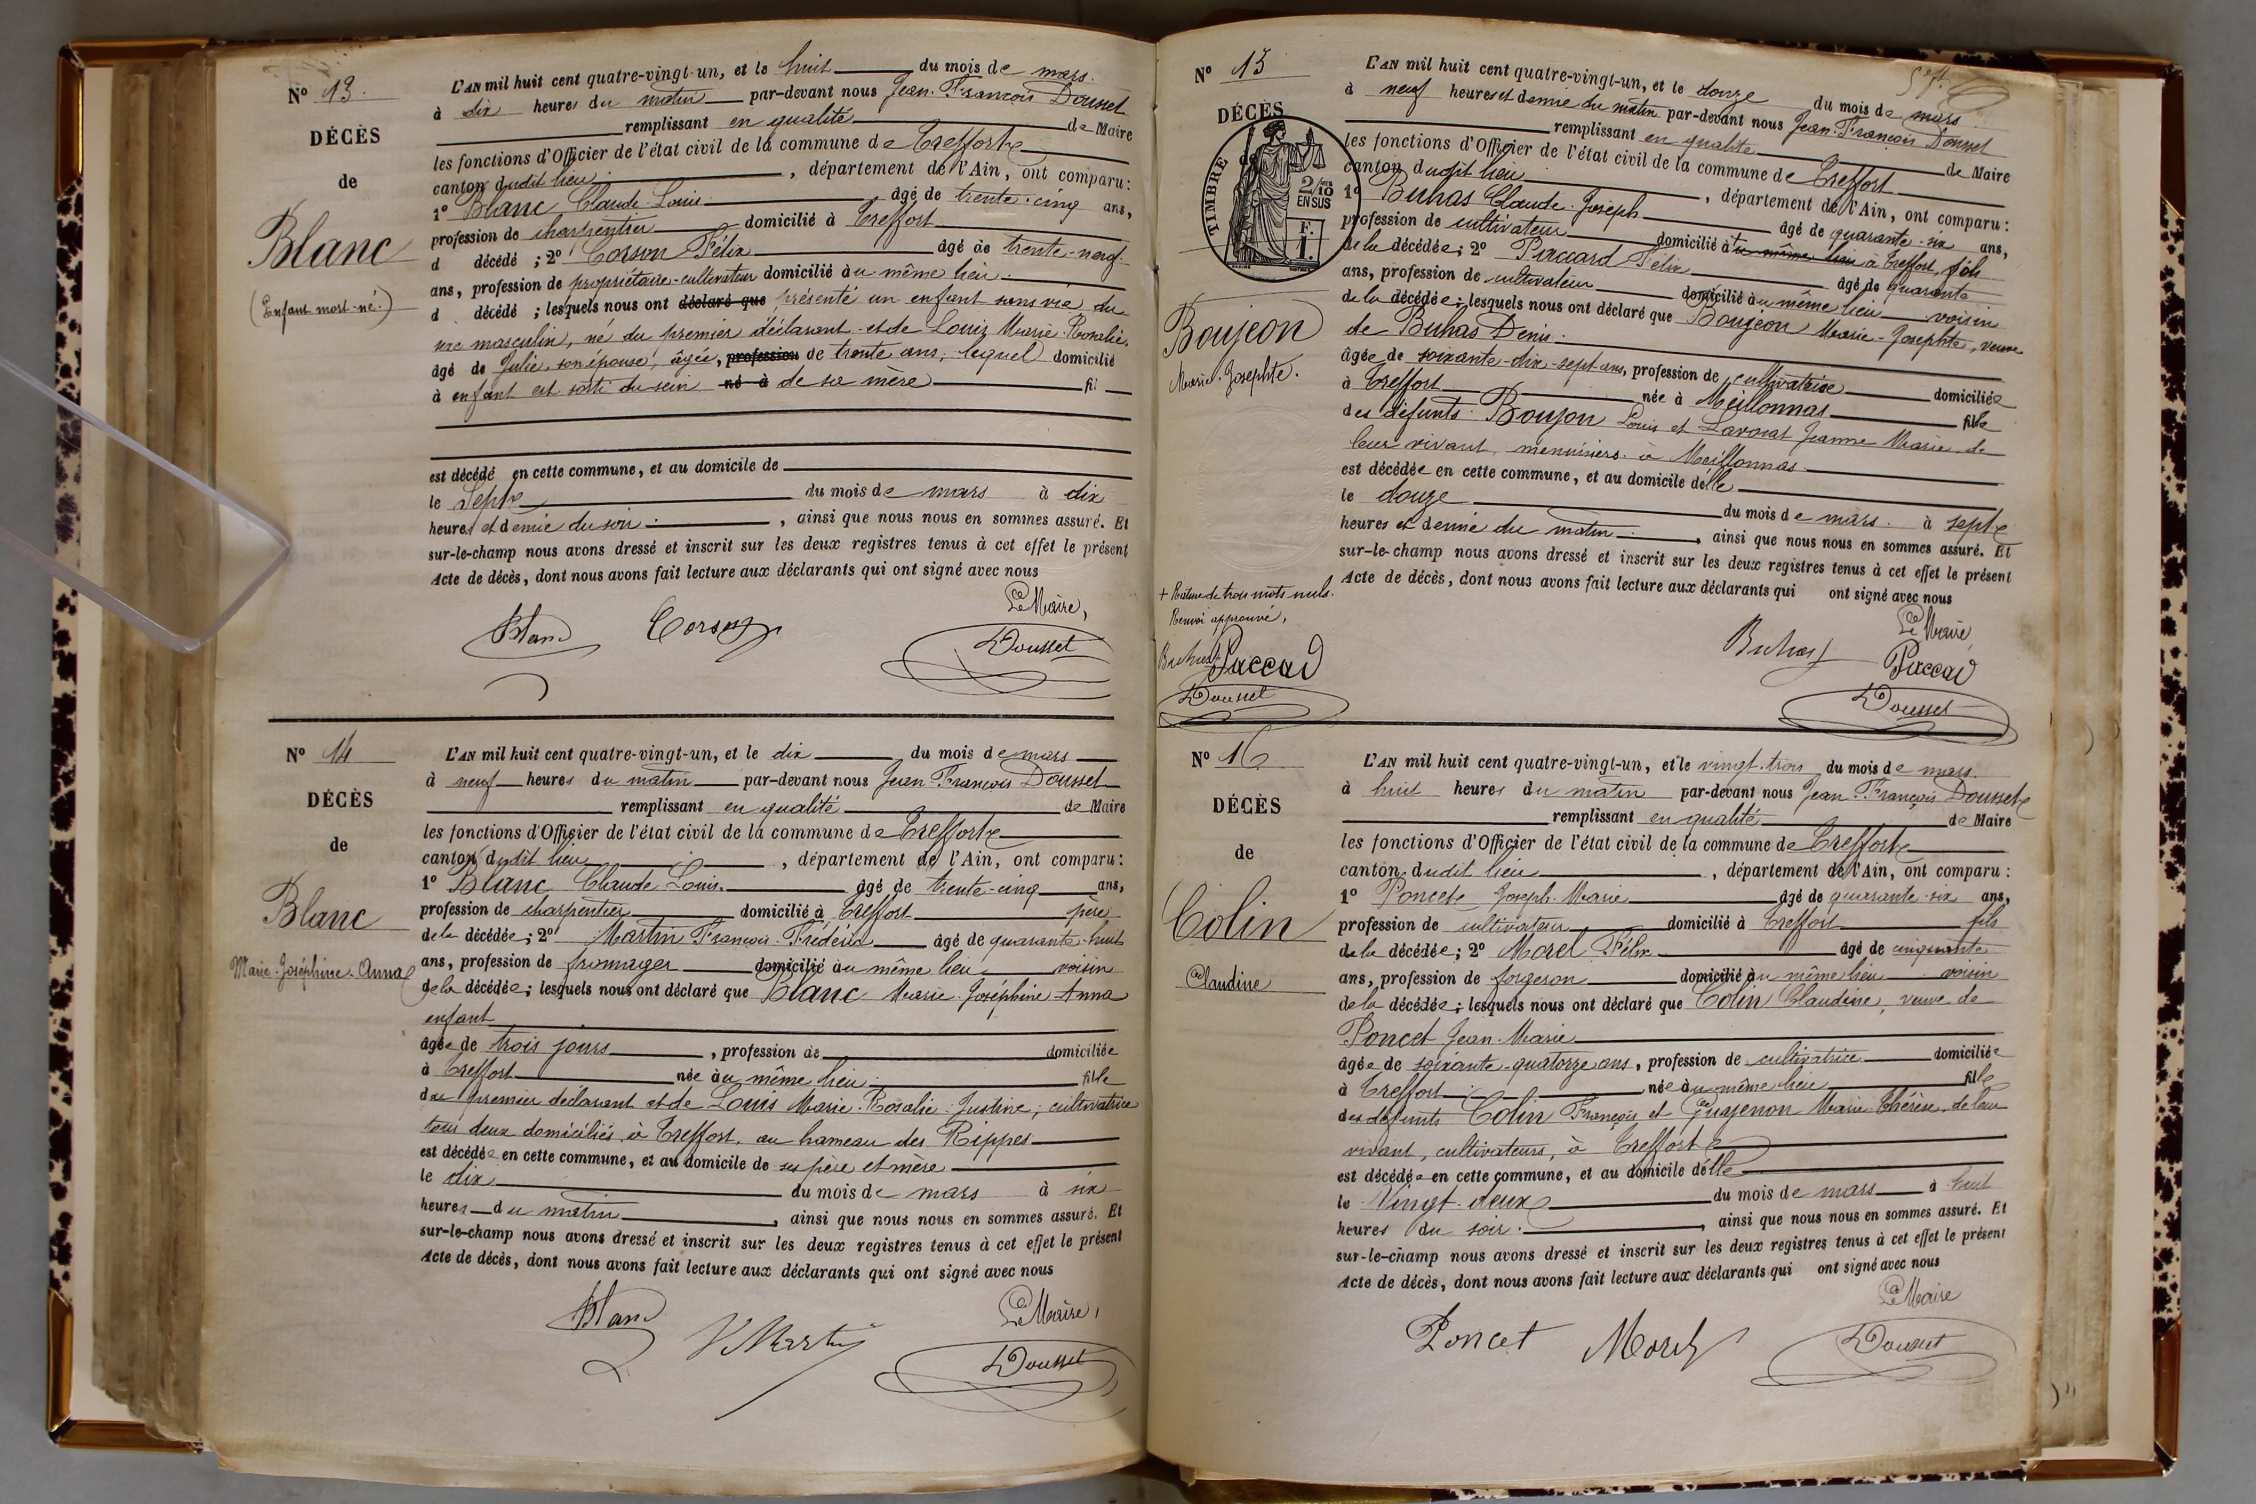 N° 13.
DÉCÈS
de
Blanc
(Enfant mort-né.)
L'AN mil huit cent quatre-vingt-un, et le huit du mois de mars.
à dix heures du matin par-devant nous Jean-François Dousset
remplissant en qualité de Maire
les fonctions d'Officier de l'état civil de la commune de Treffort
canton dudit lieu, département de l'Ain, ont comparu:
1° Blanc Claude Louis âgé de trente-cinq ans,
profession de charpentier domicilié à Treffort
d décédé ; 2° Corson Félix âgé de trente-neuf
ans, profession de propriétaire-cultivateur domicilié au même lieu.
d décédé ; lesquels nous ont déclaré que présenté un enfant sans vie du
sexe masculin, né du premier déclarant et de Louis Marie Rosalie
âgé de Julie, son épouse, âgée, profession de trente ans, lequel domicilié
à enfant est sorti du sein né à de sa mère fil
est décédé en cette commune, et au domicile de
le Sept du mois de mars à dix
heures et demie du soir, ainsi que nous nous en sommes assuré. Et
sur-le-champ nous avons dressé et inscrit sur les deux registres tenus à cet effet le présent
Acte de décès, dont nous avons fait lecture aux déclarants qui ont signé avec nous
Le Maire,
Blanc Corson Dousset
N° 14
DÉCÈS
de
Blanc
Marie-Joséphine-Anna
L'AN mil huit cent quatre-vingt-un, et le dix du mois de mars
à neuf heures du matin par-devant nous Jean-François Dousset
remplissant en qualité de Maire
les fonctions d'Officier de l'état civil de la commune de Treffort
canton dudit lieu, département de l'Ain, ont comparu:
1° Blanc Claude Louis. âgé de trente-cinq ans,
profession de charpentier domicilié à Treffort père
de la décédée; 2° Martin François-Frédéric âgé de quarante-huit
ans, profession de fromager domicilié au même lieu voisin
de la décédée; lesquels nous ont déclaré que Blanc Marie Joséphine Anna
enfant
âgée de trois jours, profession de domiciliée
à Treffort née au même lieu fille
du premier déclarant et de Louis Marie-Rosalie-Justine, cultivatrice
tous deux domiciliés à Treffort, au hameau des Rippes
est décédée en cette commune, et au domicile de ses père et mère
le dix du mois de mars à six
heures du matin, ainsi que nous nous en sommes assuré. Et
sur-le-champ nous avons dressé et inscrit sur les deux registres tenus à cet effet le présent
Acte de décès, dont nous avons fait lecture aux déclarants qui ont signé avec nous
Le Maire,
Blanc Martin Dousset
N° 15
DÉCÈS
TIMBRE
2/10
EN SUS
F.
1.
Boujeon
Marie-Josephte.
L'AN mil huit cent quatre-vingt-un, et le douze du mois de mars
à neuf heures et demie du matin par-devant nous Jean-François Dousset
remplissant en qualité de Maire
les fonctions d'Officier de l'état civil de la commune de Treffort
canton dudit lieu, département de l'Ain, ont comparu:
1° Buhas Claude-Joseph âgé de quarante-six ans,
profession de cultivateur domicilié à + au même lieu à Treffort, fils
de la décédée; 2° Paccard Félix âgé de quarante
ans, profession de cultivateur domicilié au même lieu voisin
de la décédée; lesquels nous ont déclaré que Boujeon Marie-Josephte, veuve
de Buhas Denis.
âgée de soixante-dix-sept ans, profession de cultivatrice domiciliée
à Treffort née à Meillonnas fille
des défunts Boujon Louis et Lavorat Jeanne Marie, de
leur vivant, menuisiers à Meillonnas.
est décédée en cette commune, et au domicile d'elle
le douze du mois de mars. à sept
heures et demie du matin, ainsi que nous nous en sommes assuré. Et
sur-le-champ nous avons dressé et inscrit sur les deux registres tenus à cet effet le présent
Acte de décès, dont nous avons fait lecture aux déclarants qui ont signé avec nous
+ Rature de trois mots nuls.
Renvoi approuvé,
Buhas Paccad
Dousset
Le Maire
Buhas Paccad
Dousset
N° 16
DÉCÈS
de
Colin
Claudine
L'AN mil huit cent quatre-vingt-un, et le vingt-trois du mois de mars
à huit heures du matin par-devant nous Jean-François Dousset
remplissant en qualité de Maire
les fonctions d'Officier de l'état civil de la commune de Treffort
canton dudit lieu, département de l'Ain, ont comparu:
1° Poncet Joseph-Marie âgé de quarante-six ans,
profession de cultivateur domicilié à Treffort fils
de la décédée; 2° Morel Félix âgé de cinquante
ans, profession de forgeron domicilié au même lieu voisin
de la décédée; lesquels nous ont déclaré que Colin Claudine, veuve de
Poncet Jean-Marie
âgée de soixante-quatorze ans, profession de cultivatrice domiciliée
à Treffort née au même lieu fille
des défunts Colin François et Marie Thérèse, de leur
vivant, cultivateurs, à Treffort
est décédée en cette commune, et au domicile d'elle
le Vingt-deux du mois de mars à huit
heures du soir, ainsi que nous nous en sommes assuré. Et
sur-le-champ nous avons dressé et inscrit sur les deux registres tenus à cet effet le présent
Acte de décès, dont nous avons fait lecture aux déclarants qui ont signé avec nous
Le Maire
Poncet Morel Dousset